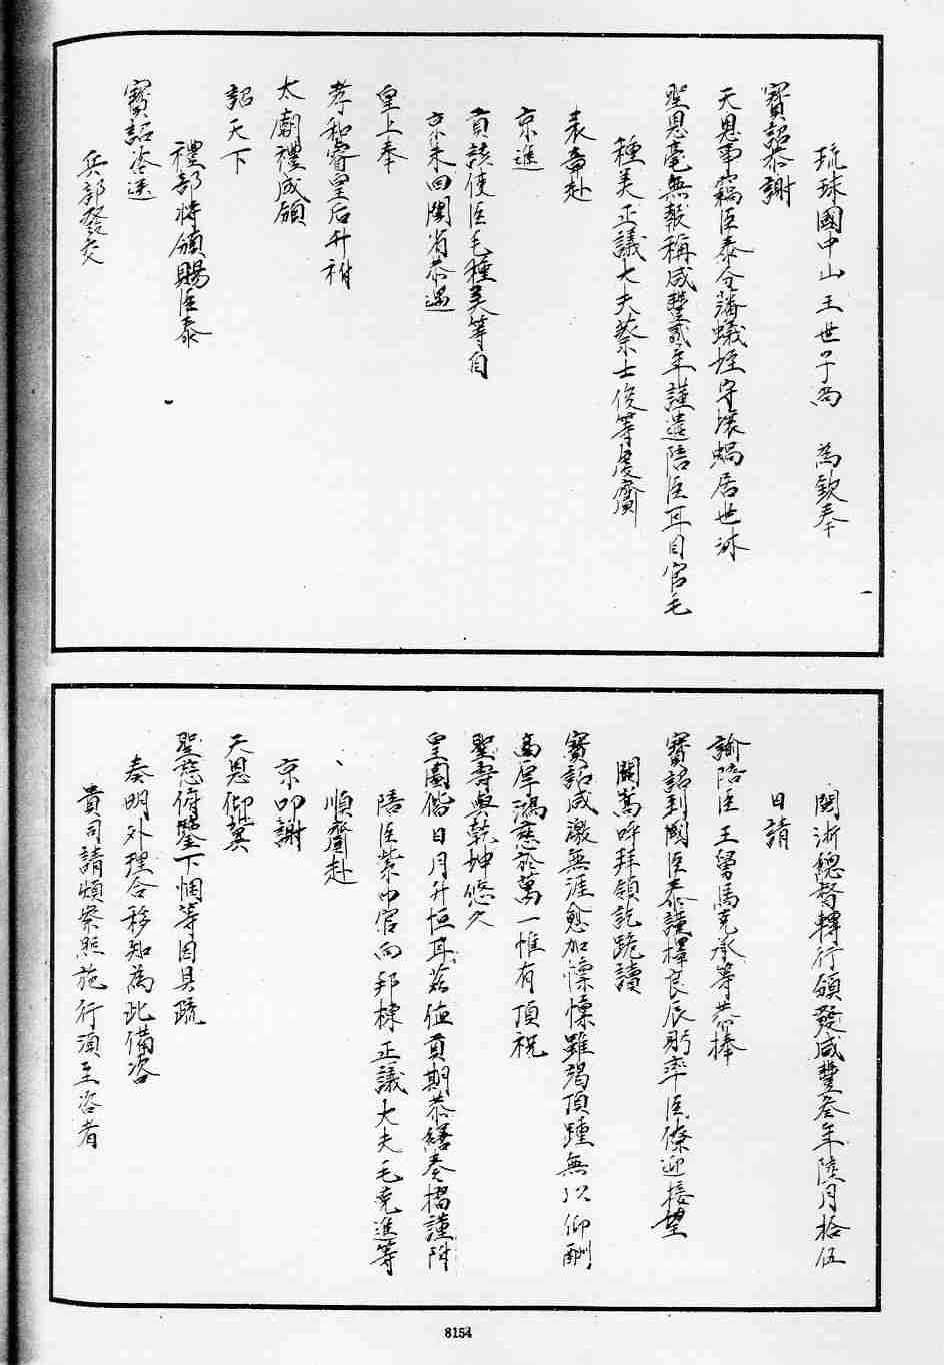 琉球國中山王世子尚　為欽奉
寶詔恭謝
天恩事竊臣泰仝藩蟻垤守壤蝸居世沐
聖恩毫無報稱咸豐貳年謹遣陪臣耳目官毛
種美正議大夫蔡士俊等虔齎
表章赴
京進
貢該使臣毛種美等自
京來回閩省恭遇
皇上奉
孝和睿皇后升祔
太廟禮成頒
詔天下
禮部將頒賜臣泰
寶詔咨送
兵部發交
閩浙總督轉行頒發咸豐叁年陸月拾伍
日請
諭陪臣王舅馬克承等恭捧
寶詔到國臣泰謹擇良辰躬率臣僚迎接望
闕嵩呼拜領訖跪讀
寶詔感激無涯愈加懍懍雖竭頂踵無以仰酬
高厚鴻慈於萬一惟有頂祝
聖壽與乾坤悠久
皇圖偕日月升恒耳茲值貢期恭繕奏摺謹附
陪臣紫巾官向邦棟正議大夫毛克進等
順齎赴
京叩謝
天恩仰冀
聖慈俯鑒下悃等因具疏
奏明外理合移知為此備咨
貴司請煩察照施行須至咨者
8154